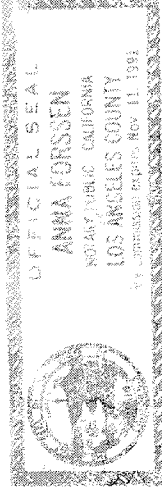 OFFICIAL SEAL
ANNA FORSSEN
NOTARY PUBLIC CALIFORNIA
LOS ANGELES COUNTY
My commission expires Nov 11